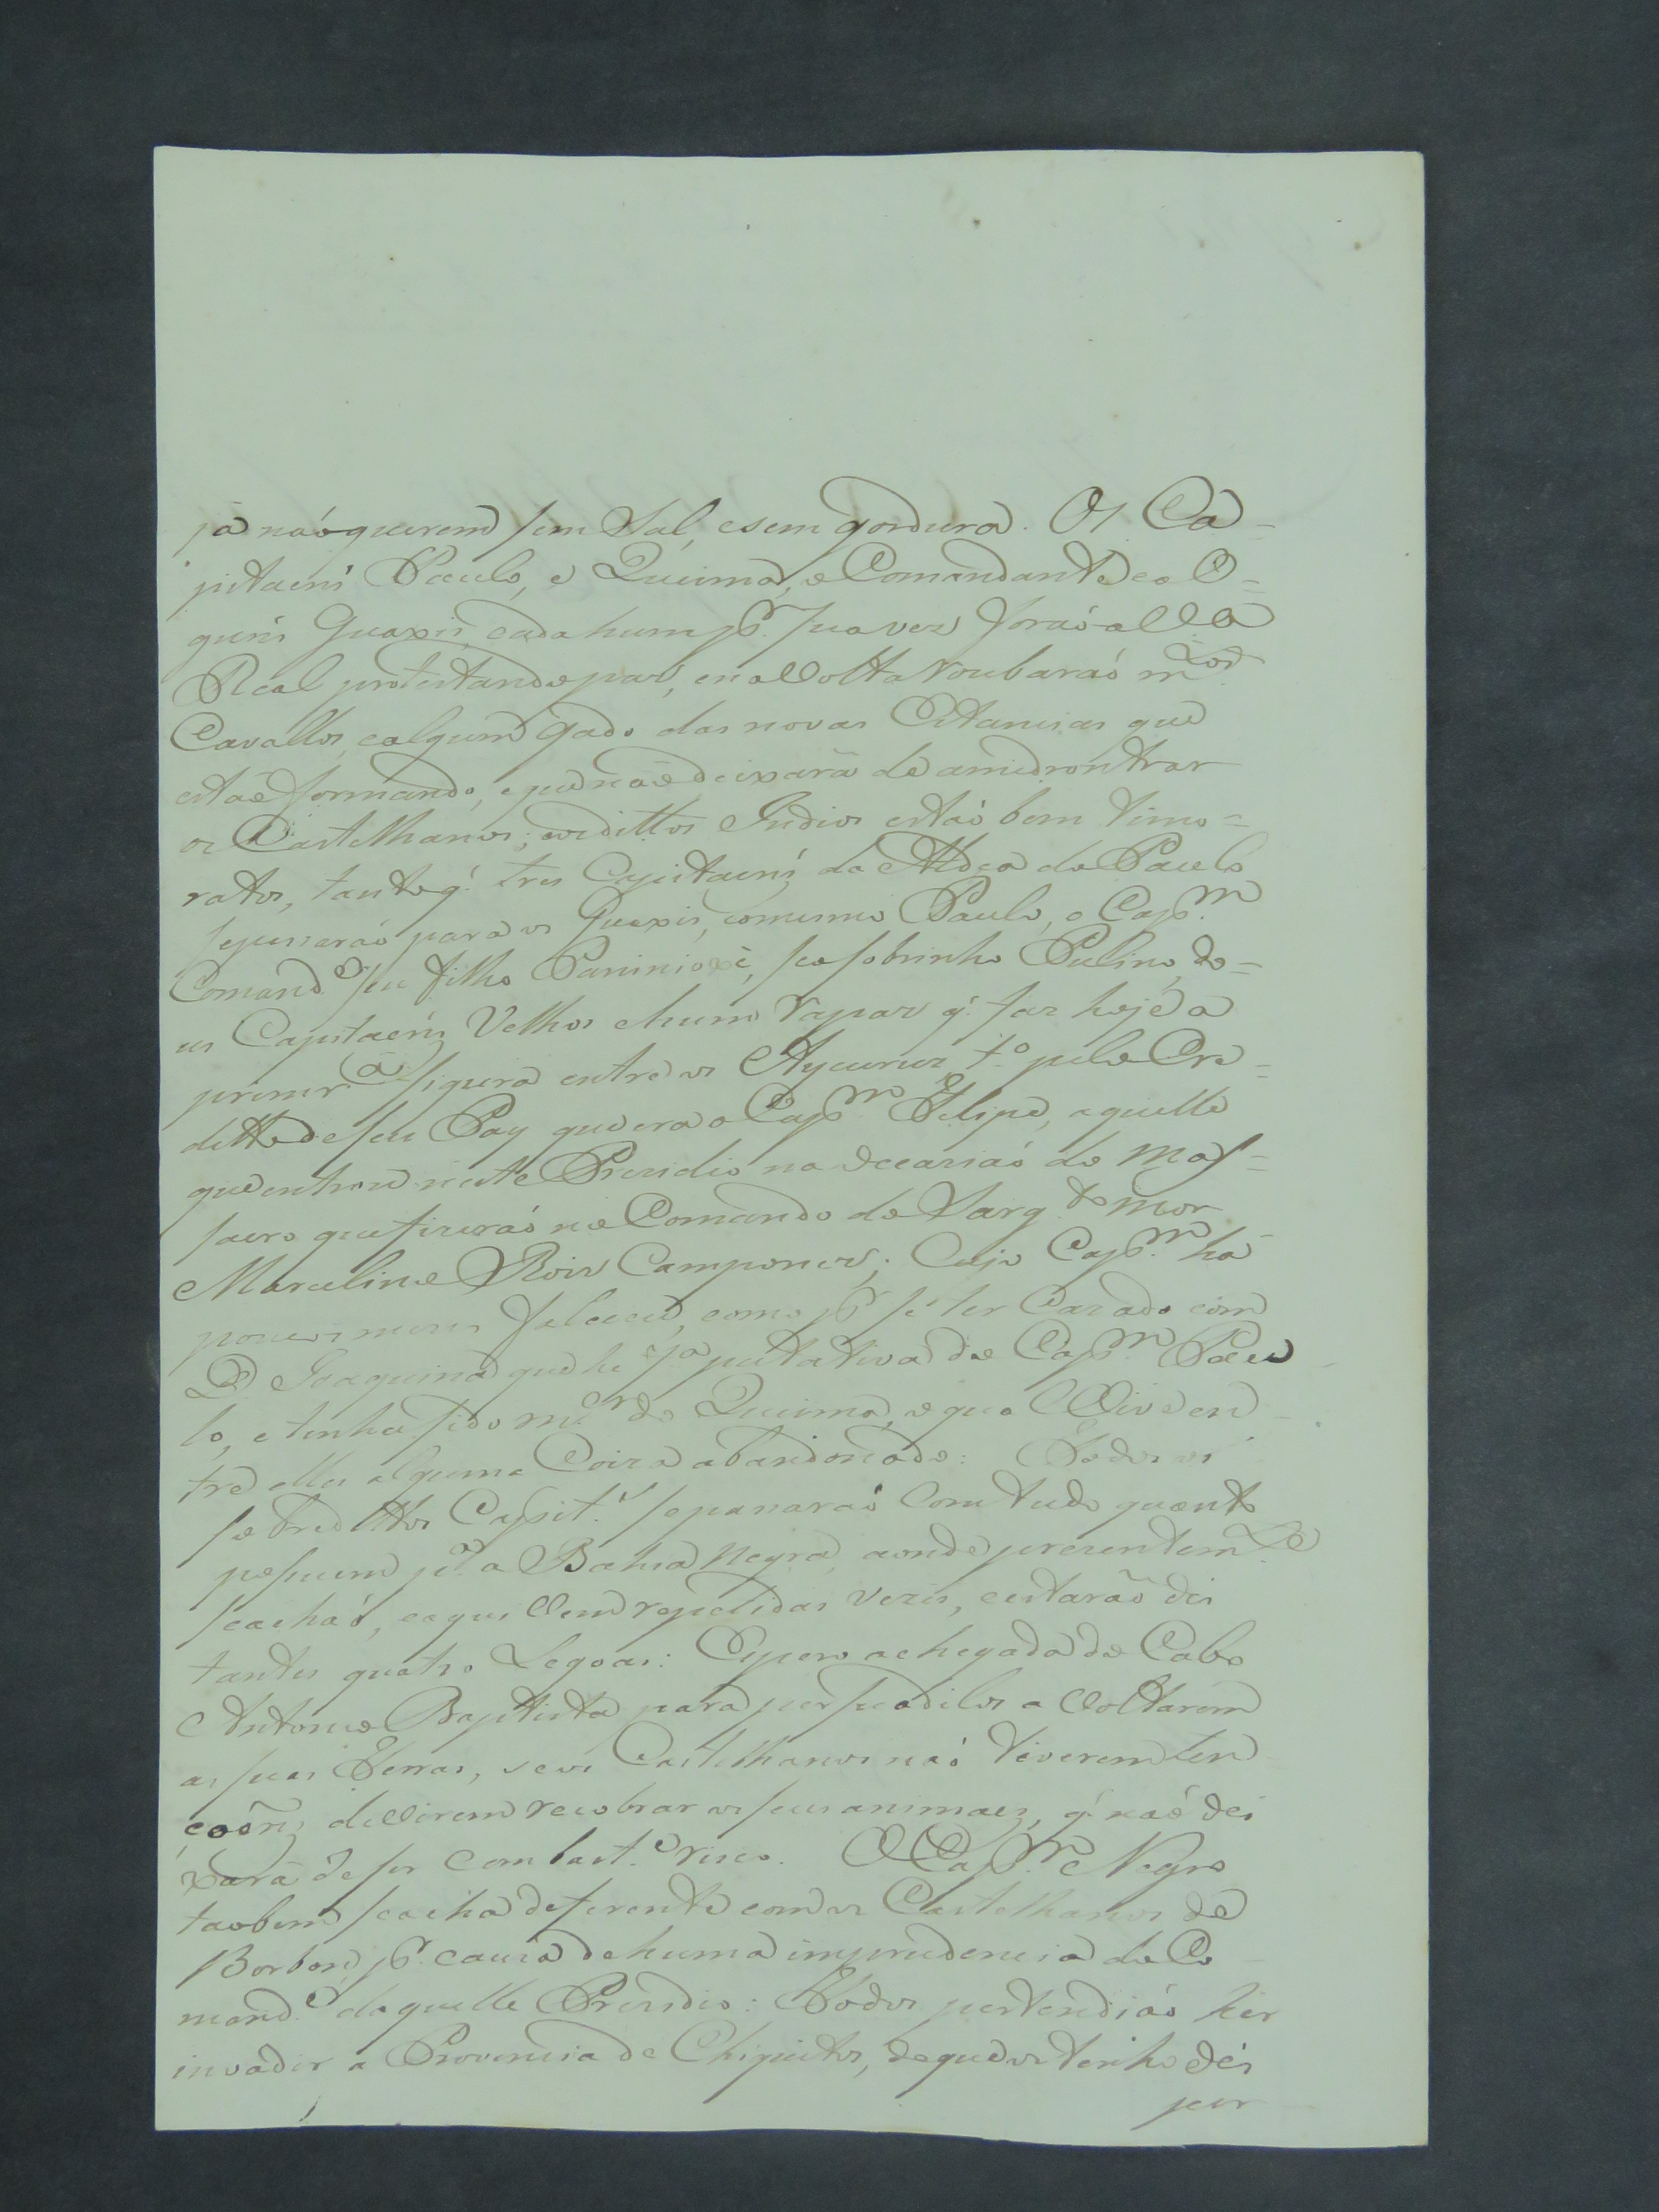 já naó querem sem Sal, e sem gordura. Os Ca-
pitaens Paulo, e Queima, o Comandante e o O=
guris Guaxis, cada hum pr. sua vez foraó a Va
Real protestando paz, e na Volta roubaraó mtos.
Cavallos, e algum gado das novas Estancias que
estaõ formando, e que naõ deixará de amedrontrar
os Castelhanos; e os dittos Indios estaó bem timo=
ratos, tanto q'. tres Capitaens da Aldea do Paulo
se pussaraó para os Guaxis, o mesmo Paulo, o Capm.
Comande. seu filho Paninioxè, seu sobrinho Pulino, do=
us Capitaens Velhos e hum rapaz q'. faz hoje a
primra. figura entre os Aycurus, to. pelo Cre=
ditto de seu Pay que era o Capm. Felipe, aquelle
que entrou neste Prezidio na occaziaó do mas=
sacro que fizeraó no Comando do Sargto. mor
Marcelino Rois Campones; Cujo Capm. há
poucos mezes faleceu, como pr. se ter Cazado com
D. Joaquina que he fa. putativa do Capm. Pau
lo, e tinha sido mer. do Queima, o qual Vive en
tre elles alguma Coiza abandonado: Todos os
sobreditos Capit.s se panaraó Com tudo quanto
possuem pa. a Bahia Negra, aonde prezentemte.
se achaó, e aqui Vem repetidas Vezes, e estaraõ dis
tantes quatro Legoas: Espero a chegada do Cabo
Antonio Baptista para persuadilos a Voltarem
as suas Terras, se os Castelhanos naó tiverem ten
çoens de Virem recobrar os seus animaes, q'. naõ dei
xará de ser Com baste. risco. O Capm. Negro
taobem se acha deferente com os Castelhanos de
Borbon, pr. cauza de huma imprudencia do Co-
mande. daquelle Prezidio: Todos pertendiaó hir
invadir a Provincia de Chiquitos, do que os tenho dis
per